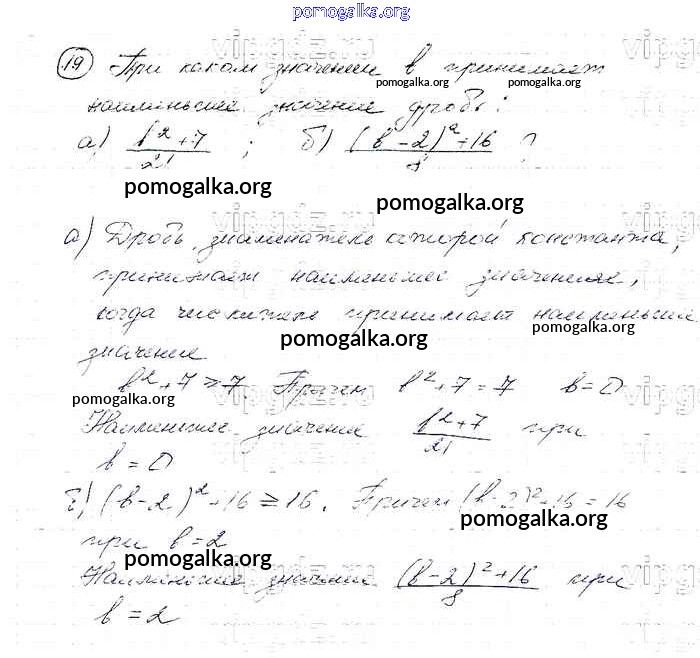 pomogalka.org
19 При каком значении b принимает
pomogalka.org pomogalka.org
наименьшее значение дробь:
а) (b² + 7)/21 ; б) ((b - 2)² + 16)/8 ?
pomogalka.org pomogalka.org
а) Дробь, знаменатель которой константа,
принимает наименьшее значение,
когда числитель принимает наименьшее
pomogalka.org pomogalka.org
значение
b² + 7 ≥ 7. Причем b² + 7 = 7 b = 0
pomogalka.org
Наименьшее значение (b² + 7)/21 при
b = 0
б) (b - 2)² + 16 ≥ 16. Причем (b - 2)² + 16 = 16
pomogalka.org
при b = 2
pomogalka.org
Наименьшее значение ((b - 2)² + 16)/8 при
b = 2
pomogalka.org